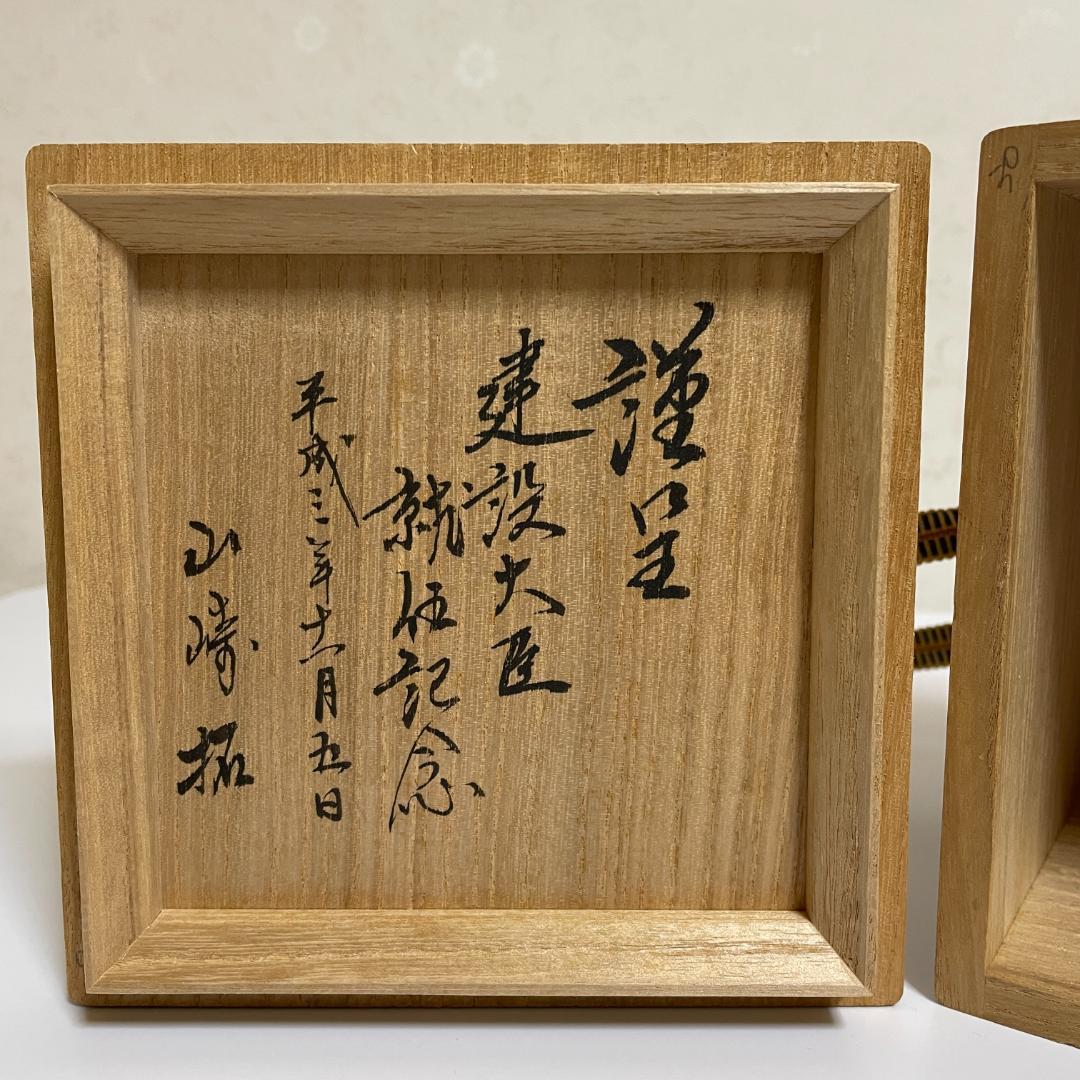 謹呈
建設大臣
就任記念
平成三年十一月五日
山崎拓